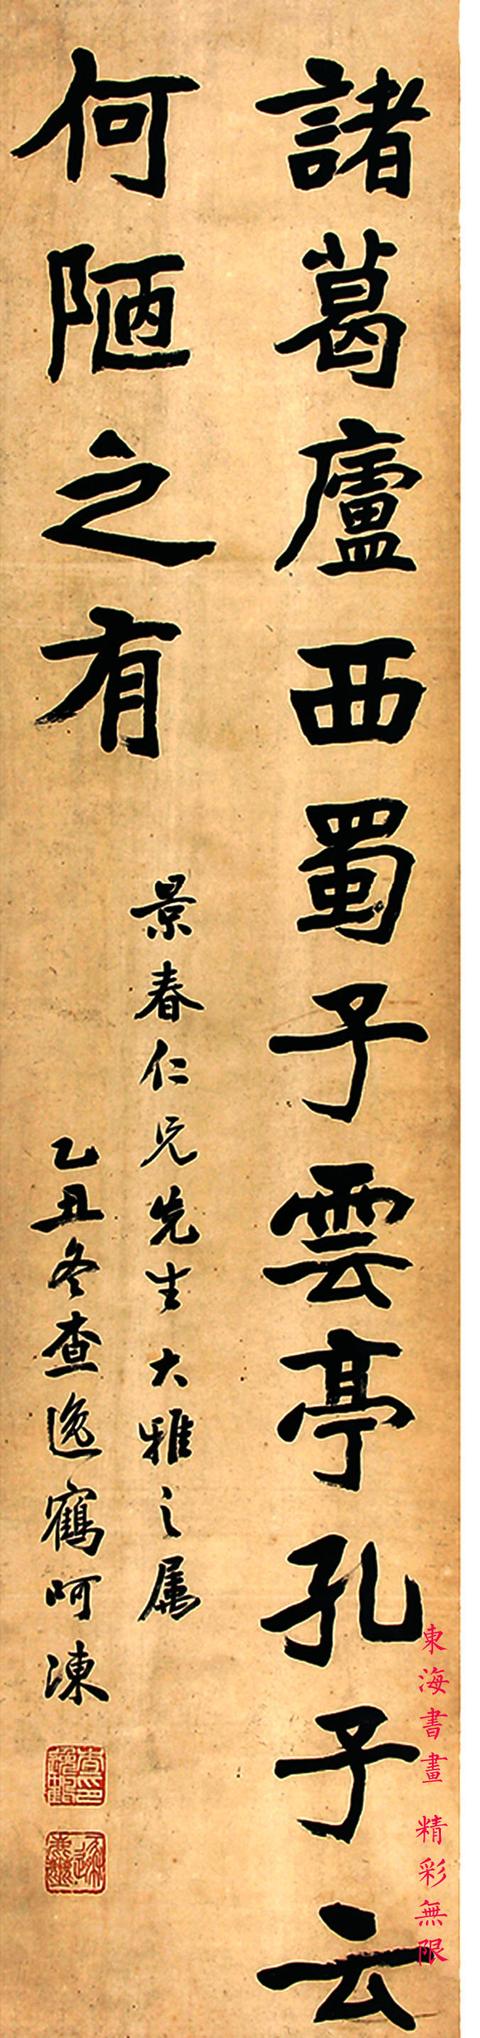 諸葛廬西蜀子雲亭孔子云
何陋之有
景春仁兄先生大雅之属
乙丑冬查逸鶴呵凍
東海書畫 精彩無限